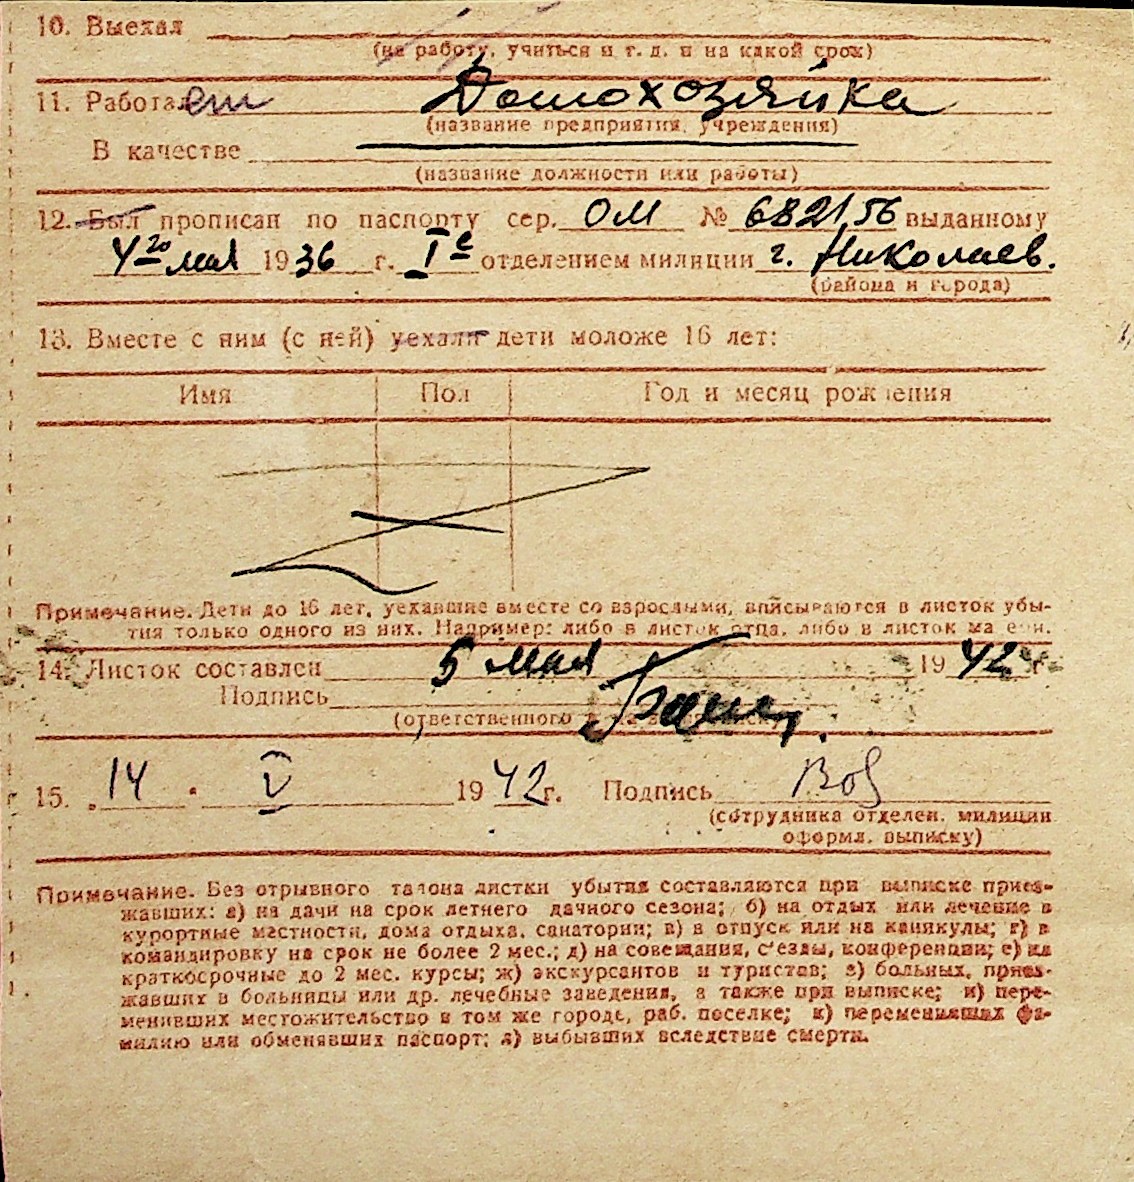 10. Выехал
(на работу, учиться и т. д. и на какой срок)
11. Работает Домохозяйка
(название предприятия, учреждения)
В качестве
(название должности или работы)
12. Был прописан по паспорту сер. ОМ № 682156 выданному
4го мая 1936 г. Iе отделением милиции г. Николаев.
(района и города)
13. Вместе с ним (с ней) уехали дети моложе 16 лет:
Имя Пол Год и месяц рождения
Примечание. Дети до 16 лет, уехавшие вместе со взрослыми, вписываются в листок убы-
тия только одного из них. Например: либо в листок отца, либо в листок матери.
14. Листок составлен 5 мая 1942 г.
Подпись
(ответственного
15. 14 V 1942 г. Подпись
(сотрудника отделен. милиции
оформл. выписку)
Примечание. Без отрывного талона листки убытия составляются при выписке приез-
жавших: а) на дачи на срок летнего дачного сезона; б) на отдых или лечение в
курортные местности, дома отдыха, санатории; в) в отпуск или на каникулы; г) в
командировку на срок не более 2 мес.; д) на совещания, с'езды, конференции; е) на
краткосрочные до 2 мес. курсы; ж) экскурсантов и туристов; з) больных, приез-
жавших в больницы или др. лечебные заведения, а также при выписке; и) пере-
менивших местожительство в том же городе, раб. поселке; к) переменивших фа-
милию или обменявших паспорт; л) выбывших вследствие смерти.